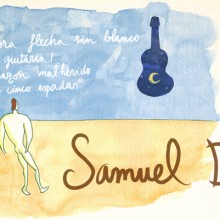 flecha sin blanco
guitarra!
malherido
cinco espadas"
Samuel